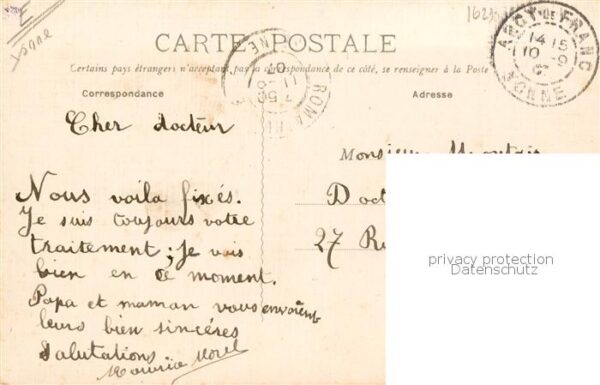 Yonne
CARTE POSTALE
Certains pays étrangers n'acceptant pas la correspondance de ce côté, se renseigner à la Poste
Correspondance
Adresse
Cher docteur
Nous voila fixés.
Je suis toujours votre
traitement ; je vais
bien en ce moment.
Papa et maman vous envoient
leurs bien sincéres
Salutations
Maurice Morel
Monsieur
Doct
27 Ru
privacy protection
Datenschutz
14 15
10 9
YONNE